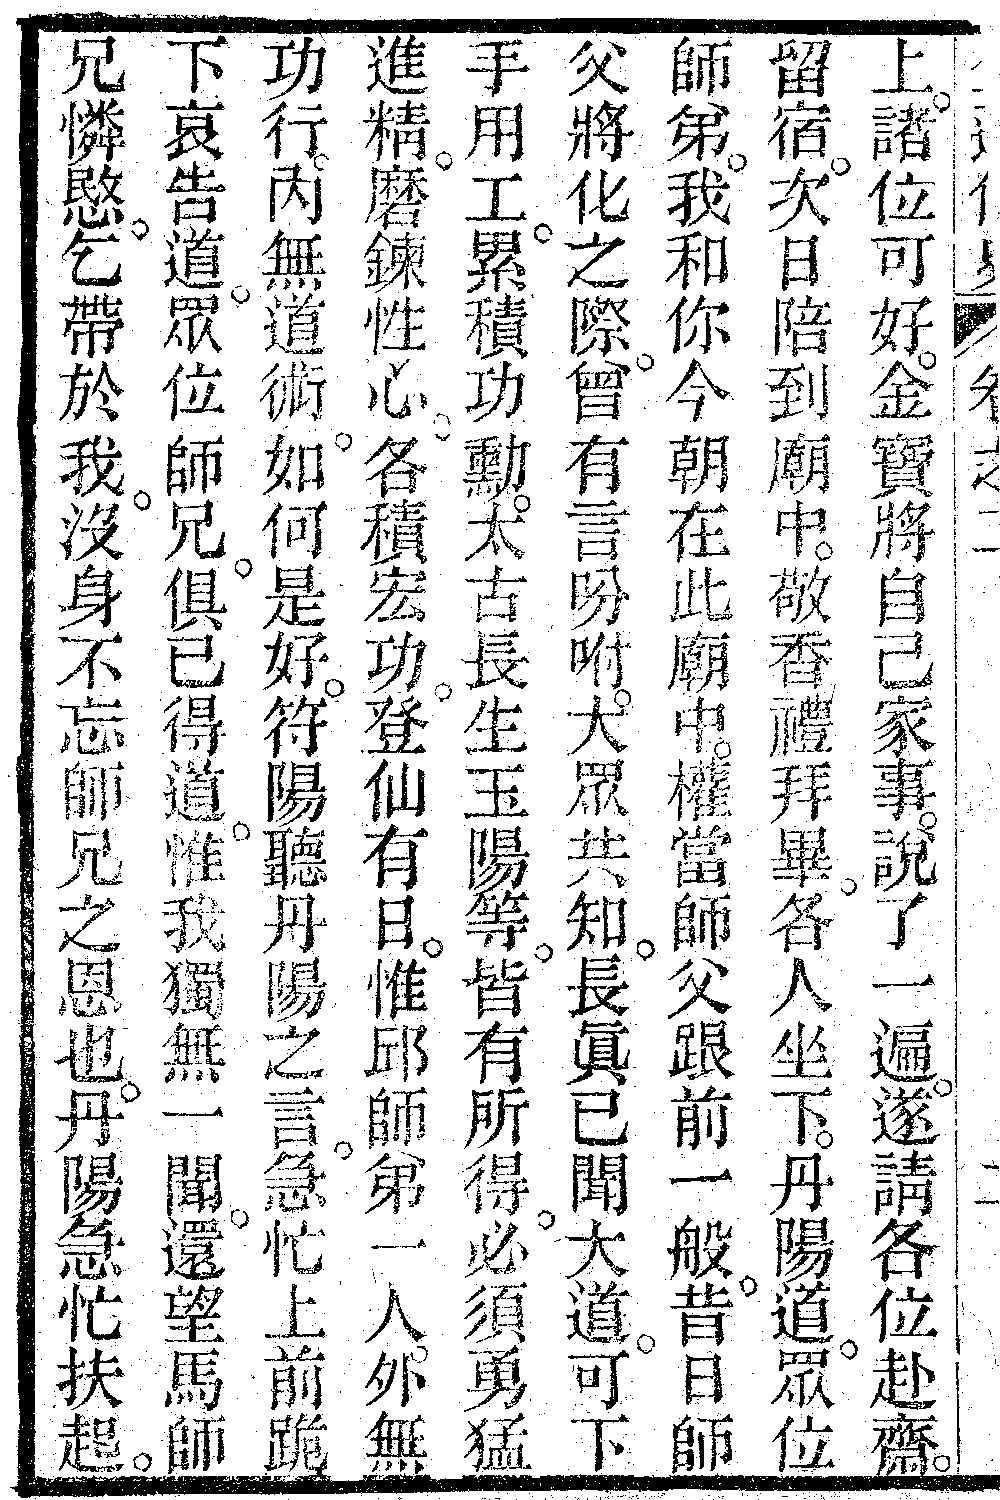 上。諸位可好。金寶將自己家事。說了一遍。遂請各位赴齋。
留宿。次日陪到廟中。敬香禮拜畢。各人坐下。丹陽道。眾位
師弟。我和你今朝在此廟中。權當師父跟前一般。昔日師
父將化之際。曾有言吩咐。大眾共知。長眞已聞大道。可下
手用工。累積功勳。太古長生玉陽等。皆有所得。必須勇猛
進精。磨鍊性心。各積宏功。登仙有日。惟邱師弟一人。外無
功行。內無道術。如何是好。符陽聽丹陽之言。急忙上前跪
下哀告道。眾位師兄。俱已得道。惟我獨無一聞。還望馬師
兄憐愍。乞帶於我。沒身不忘師兄之恩也。丹陽急忙扶起。
卷之二
二